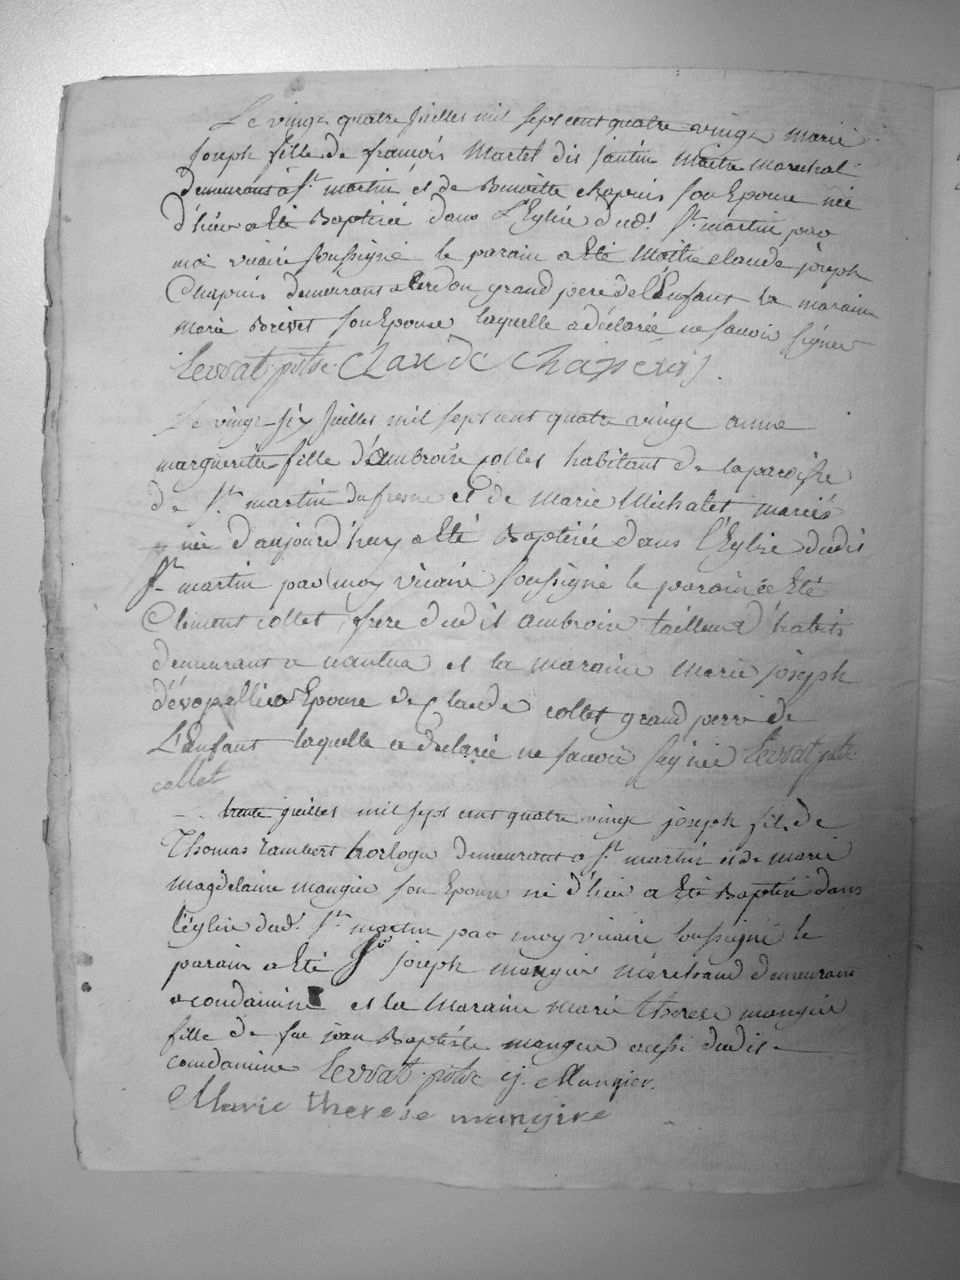 Le vingt quatre Juillet mil sept cent quatre vingt marie
Joseph fille de francois Martel dit jantin Maitre Marechal
demeurant a St. martin et de Benoitte chapuis son Epouse née
d'hier a Eté Baptisée dans L'Eglise dud.t St. martin par
moi vicaire soussigné le parain a Eté Maitre claude joseph
Chapuis demeurant a Cerdon grand pere de l'Enfant la maraine
marie Brivet son Epouse laquelle a déclarée ne savoir signer
Levrat ptre Claude Chapeuis.
Le vingt six Juillet mil sept cent quatre vingt anne
margueritte fille d'ambroise Collet habitant de la paroisse
de St. martin du fresne et de Marie Michalet mariés
née d'aujourd'huy a Eté Baptisée dans l'Eglise dudit
St. martin par moy vicaire soussigné le parain a Eté
Clement collet frere dudit ambroise tailleur d'habits
demeurant a nantua et la maraine marie joseph
Epouse de Claude collet grand perre de
L'Enfant laquelle a declarée ne savoir signer Levrat ptre
collet
trente juillet mil sept cent quatre vingt joseph fils de
Thomas Lambert horloger demeurant a St. martin et de marie
magdelaine mangier son Epouse né d'hier a Eté Baptisé dans
l'église dud.t St. martin par moy vicaire soussigné le
parain a Eté Sr. joseph mangier Marchand demeurant
a condamine et la Maraine marie therese mangier
fille de feu jean Baptiste mangier aussi dudit
condamine Levrat ptre j. Mangier.
Marie therese mangire